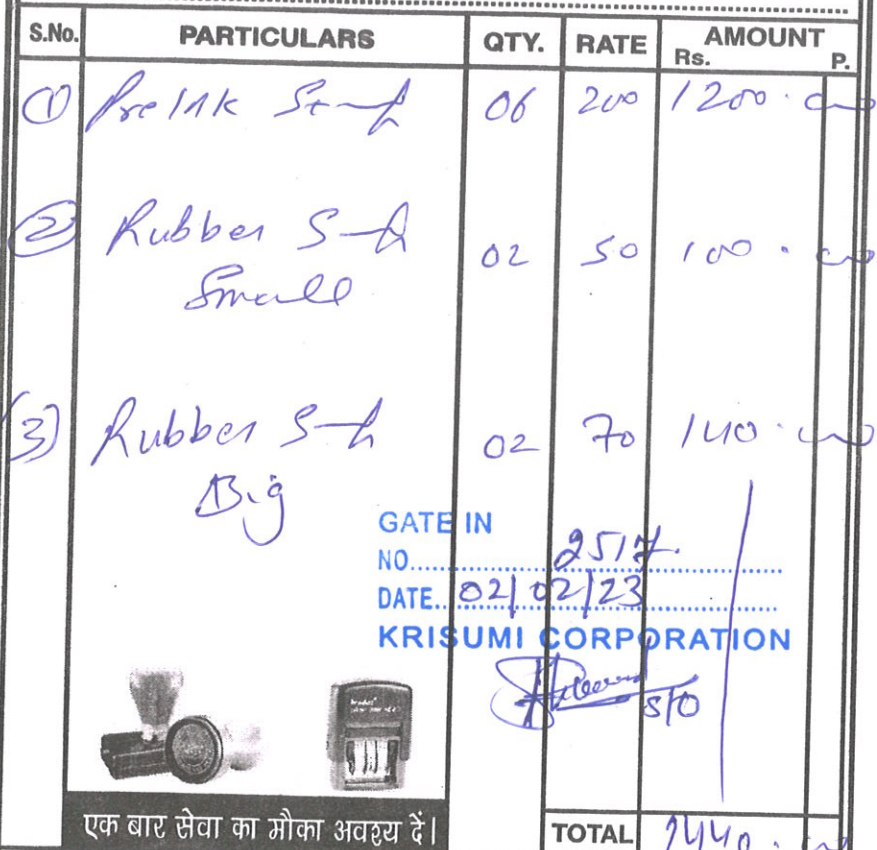 S.No. PARTICULARS QTY. RATE AMOUNT
Rs. P.
(1) Pre Ink 06 200 1200.00
(2) Rubber 02 50 100.00
Small
(3) Rubber 02 70 140.00
Big
GATE IN
NO. 2517
DATE. 02/02/23
KRISUMI CORPORATION
S/O
एक बार सेवा का मौका अवश्य दें।
TOTAL 1440.00